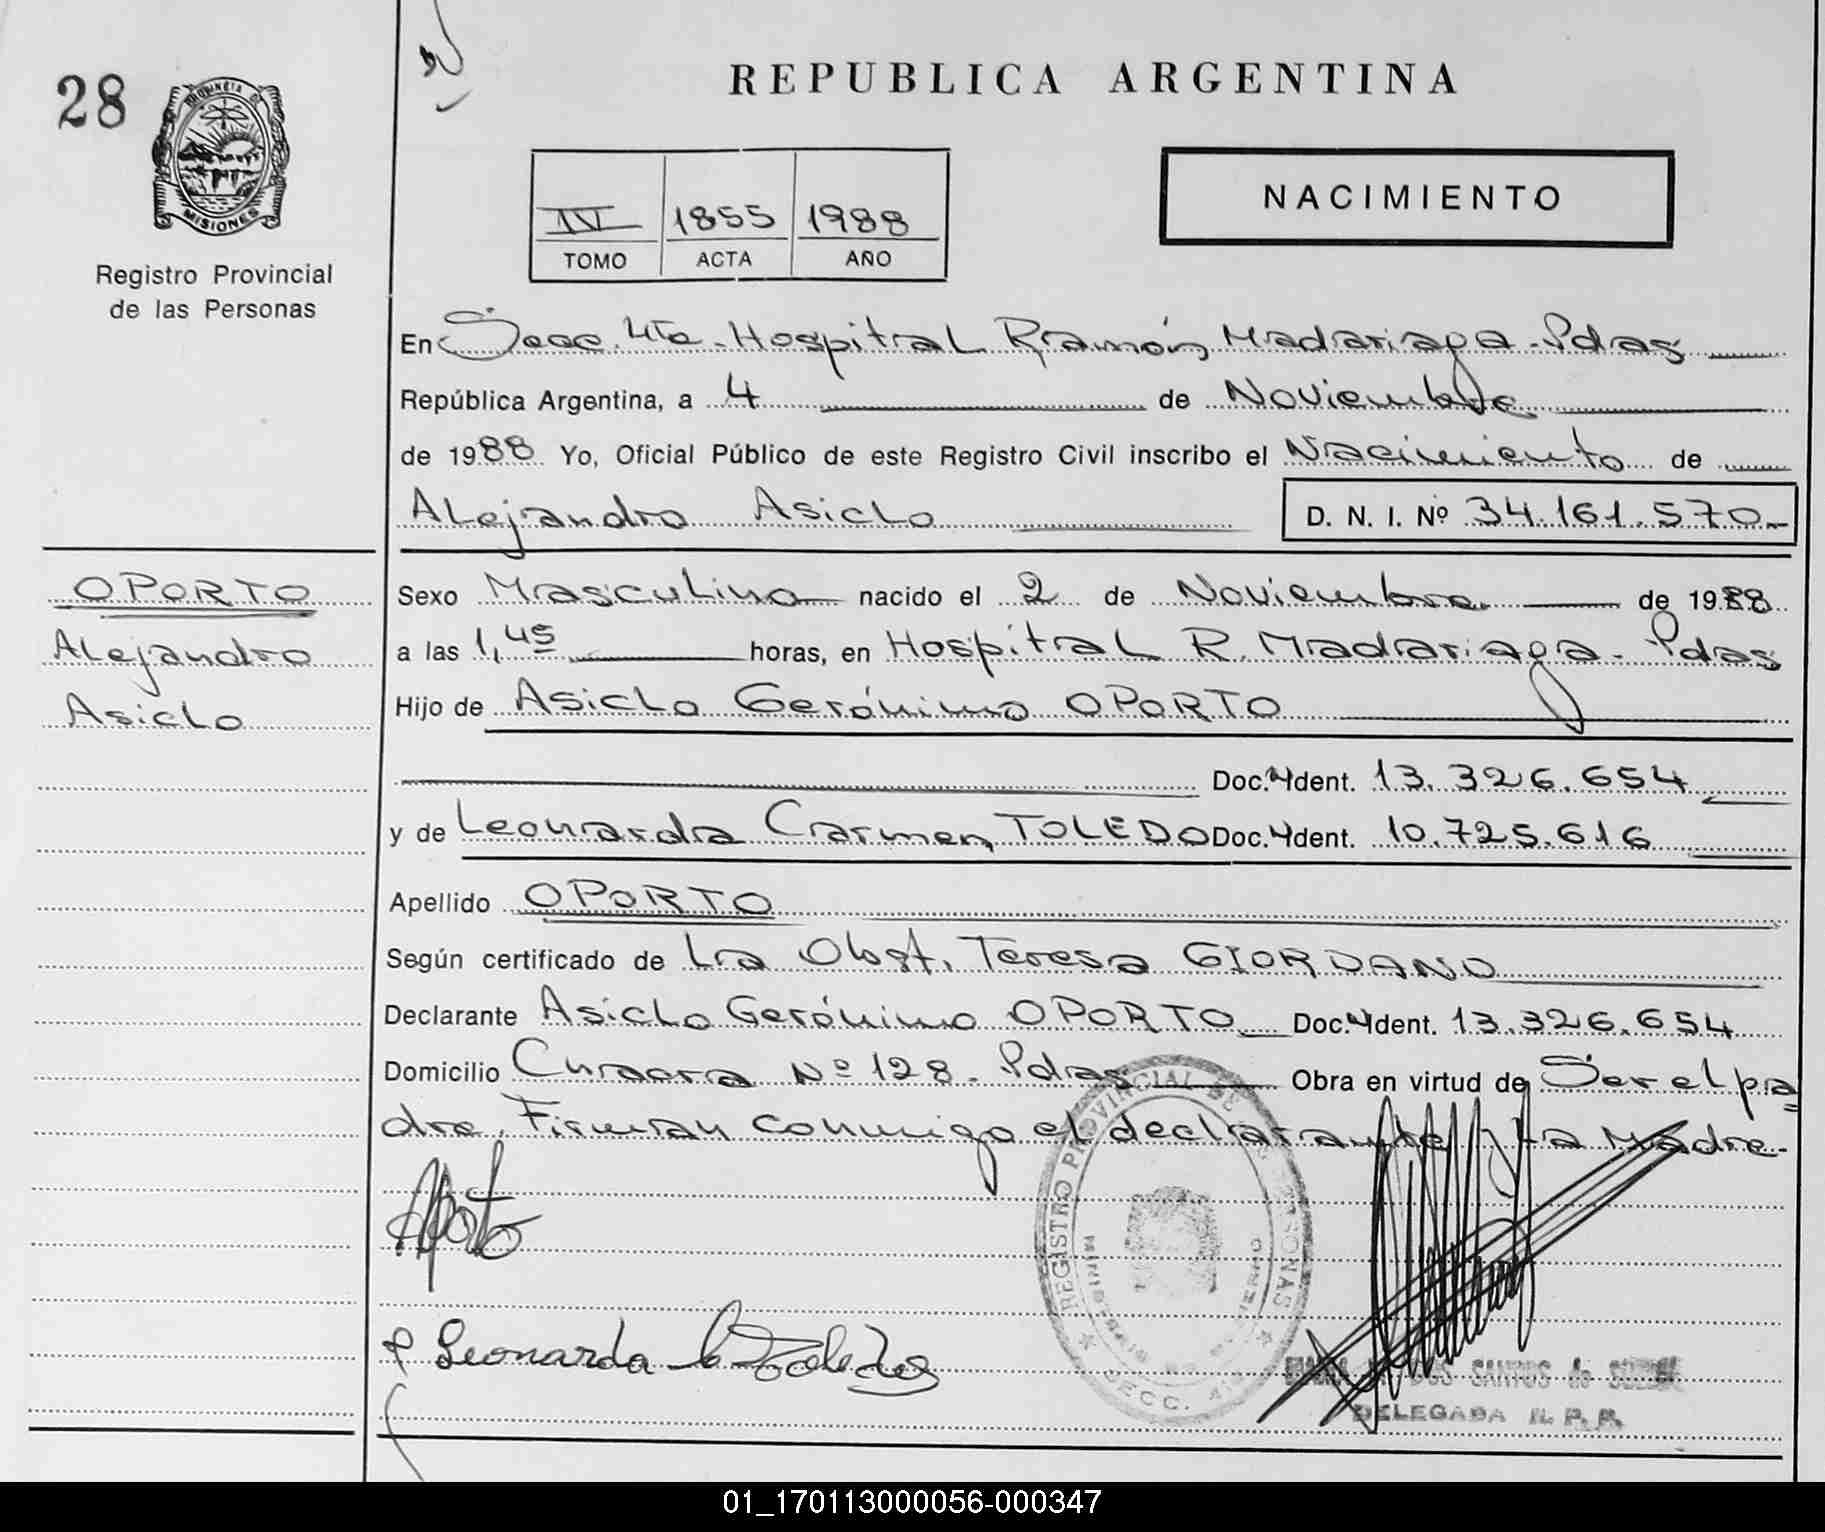 28
PROVINCIA DE
MISIONES
Registro Provincial
de las Personas
REPUBLICA ARGENTINA
NACIMIENTO
IV 1855 1988
TOMO ACTA AÑO
En Secc. 4ta. Hospital Ramón Madariaga - Pdas
República Argentina, a 4 de Noviembre
de 1988 Yo, Oficial Público de este Registro Civil inscribo el Nacimiento de
Alejandro Asiclo D. N. I. Nº 34.161.570-
OPORTO
Alejandro
Asiclo
Sexo Masculino nacido el 2 de Noviembre de 1988
a las 1,45 horas, en Hospital R. Madariaga - Pdas
Hijo de Asiclo Gerónimo OPORTO
Doc. Ident. 13.326.654
y de Leonarda Carmen TOLEDO Doc. Ident. 10.725.616
Apellido OPORTO
Según certificado de La Obst. Teresa GIORDANO
Declarante Asiclo Gerónimo OPORTO Doc. Ident. 13.326.654
Domicilio Nº 128. Pdas Obra en virtud de Ser el pa=
dre. Firman conmigo el declarante y La Madre-
Oporto
Leonarda C Toledo
REGISTRO PROVINCIAL DE LAS PERSONAS
SECC. 4ta
DOS SANTOS de
DELEGADA R. P. P.
01_170113000056-000347